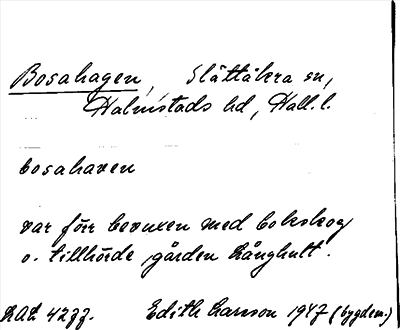 Bosahagen, Slättåkra sn,
Halmstads hd, Hall. l.
bosahaven
var förr bevuxen med bokskog
o. tillhörde gården Långhult.
Edith Larsson 1947 (bygdem.)